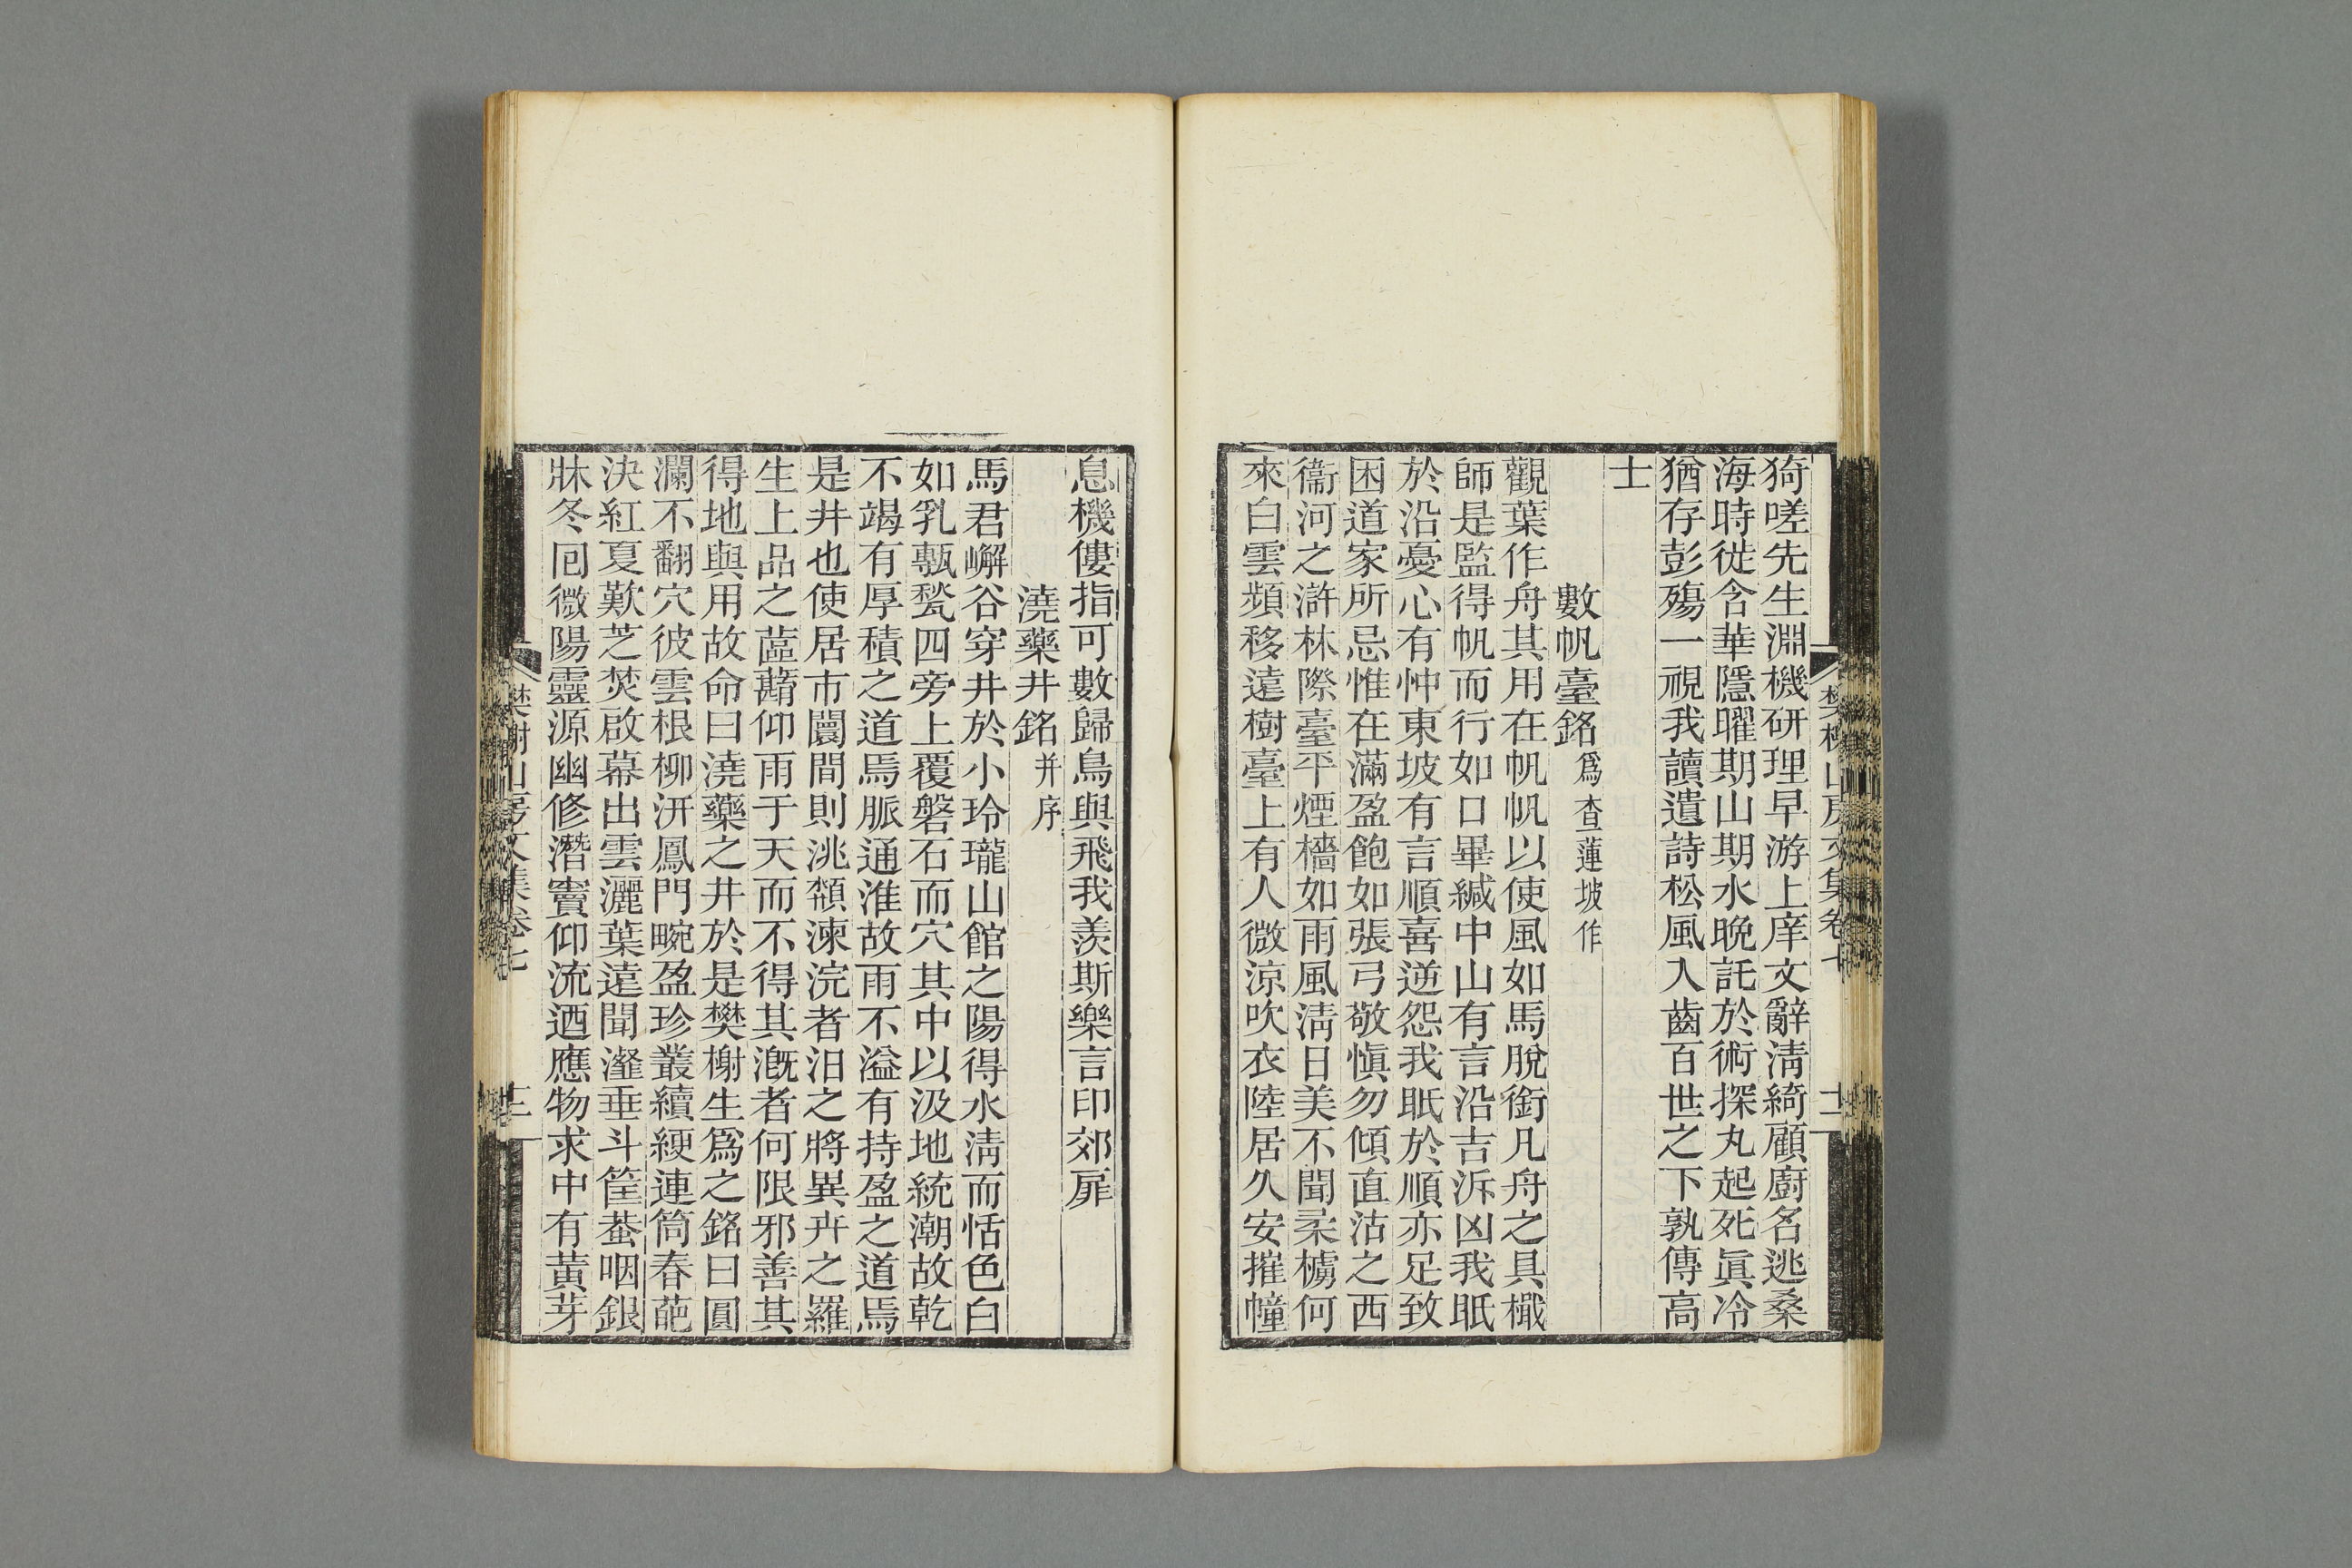 猗嗟先生淵機研理早游上庠文辭淸綺顧廚名逃桑
海時徙含華隱曜期山期水晚託於術探丸起死眞冷
猶存彭殤一視我讀遺詩松風入齒百世之下孰傳高
士
數帆臺銘爲查蓮坡作
觀葉作舟其用在帆帆以使風如馬脫銜凡舟之具檝
師是監得帆而行如口畢緘中山有言沿吉泝凶我眂
於沿憂心有忡東坡有言順喜逆怨我眂於順亦足致
困道家所忌惟在滿盈飽如張弓敬愼勿傾直沽之西
衞河之滸林際臺平煙檣如雨風淸日美不聞柔櫓何
來白雲頻移遠樹臺上有人微涼吹衣陸居久安摧幢
樊榭山房文集卷七
十二
息機僂指可數歸鳥與飛我羨斯樂言印郊扉
澆藥井銘并序
馬君嶰谷穿井於小玲瓏山館之陽得水淸而恬色白
如乳甎甃四旁上覆磐石而穴其中以汲地統潮故乾
不竭有厚積之道焉脈通淮故雨不溢有持盈之道焉
是井也使居市闤間則洮頮湅浣者汩之將異卉之羅
生上品之蘁蕕仰雨于天而不得其漑者何限邪善其
得地與用故命曰澆藥之井於是樊榭生爲之銘曰圓
瀾不翻穴彼雲根柳汧鳳門畹盈珍叢續綆連筒春葩
決紅夏歎芝焚啟幕出雲灑葉遠聞瀣垂斗筐蛬咽銀
牀冬囘微陽靈源幽修潛竇仰流迺應物求中有黃芽
樊榭山房文集卷七
十三